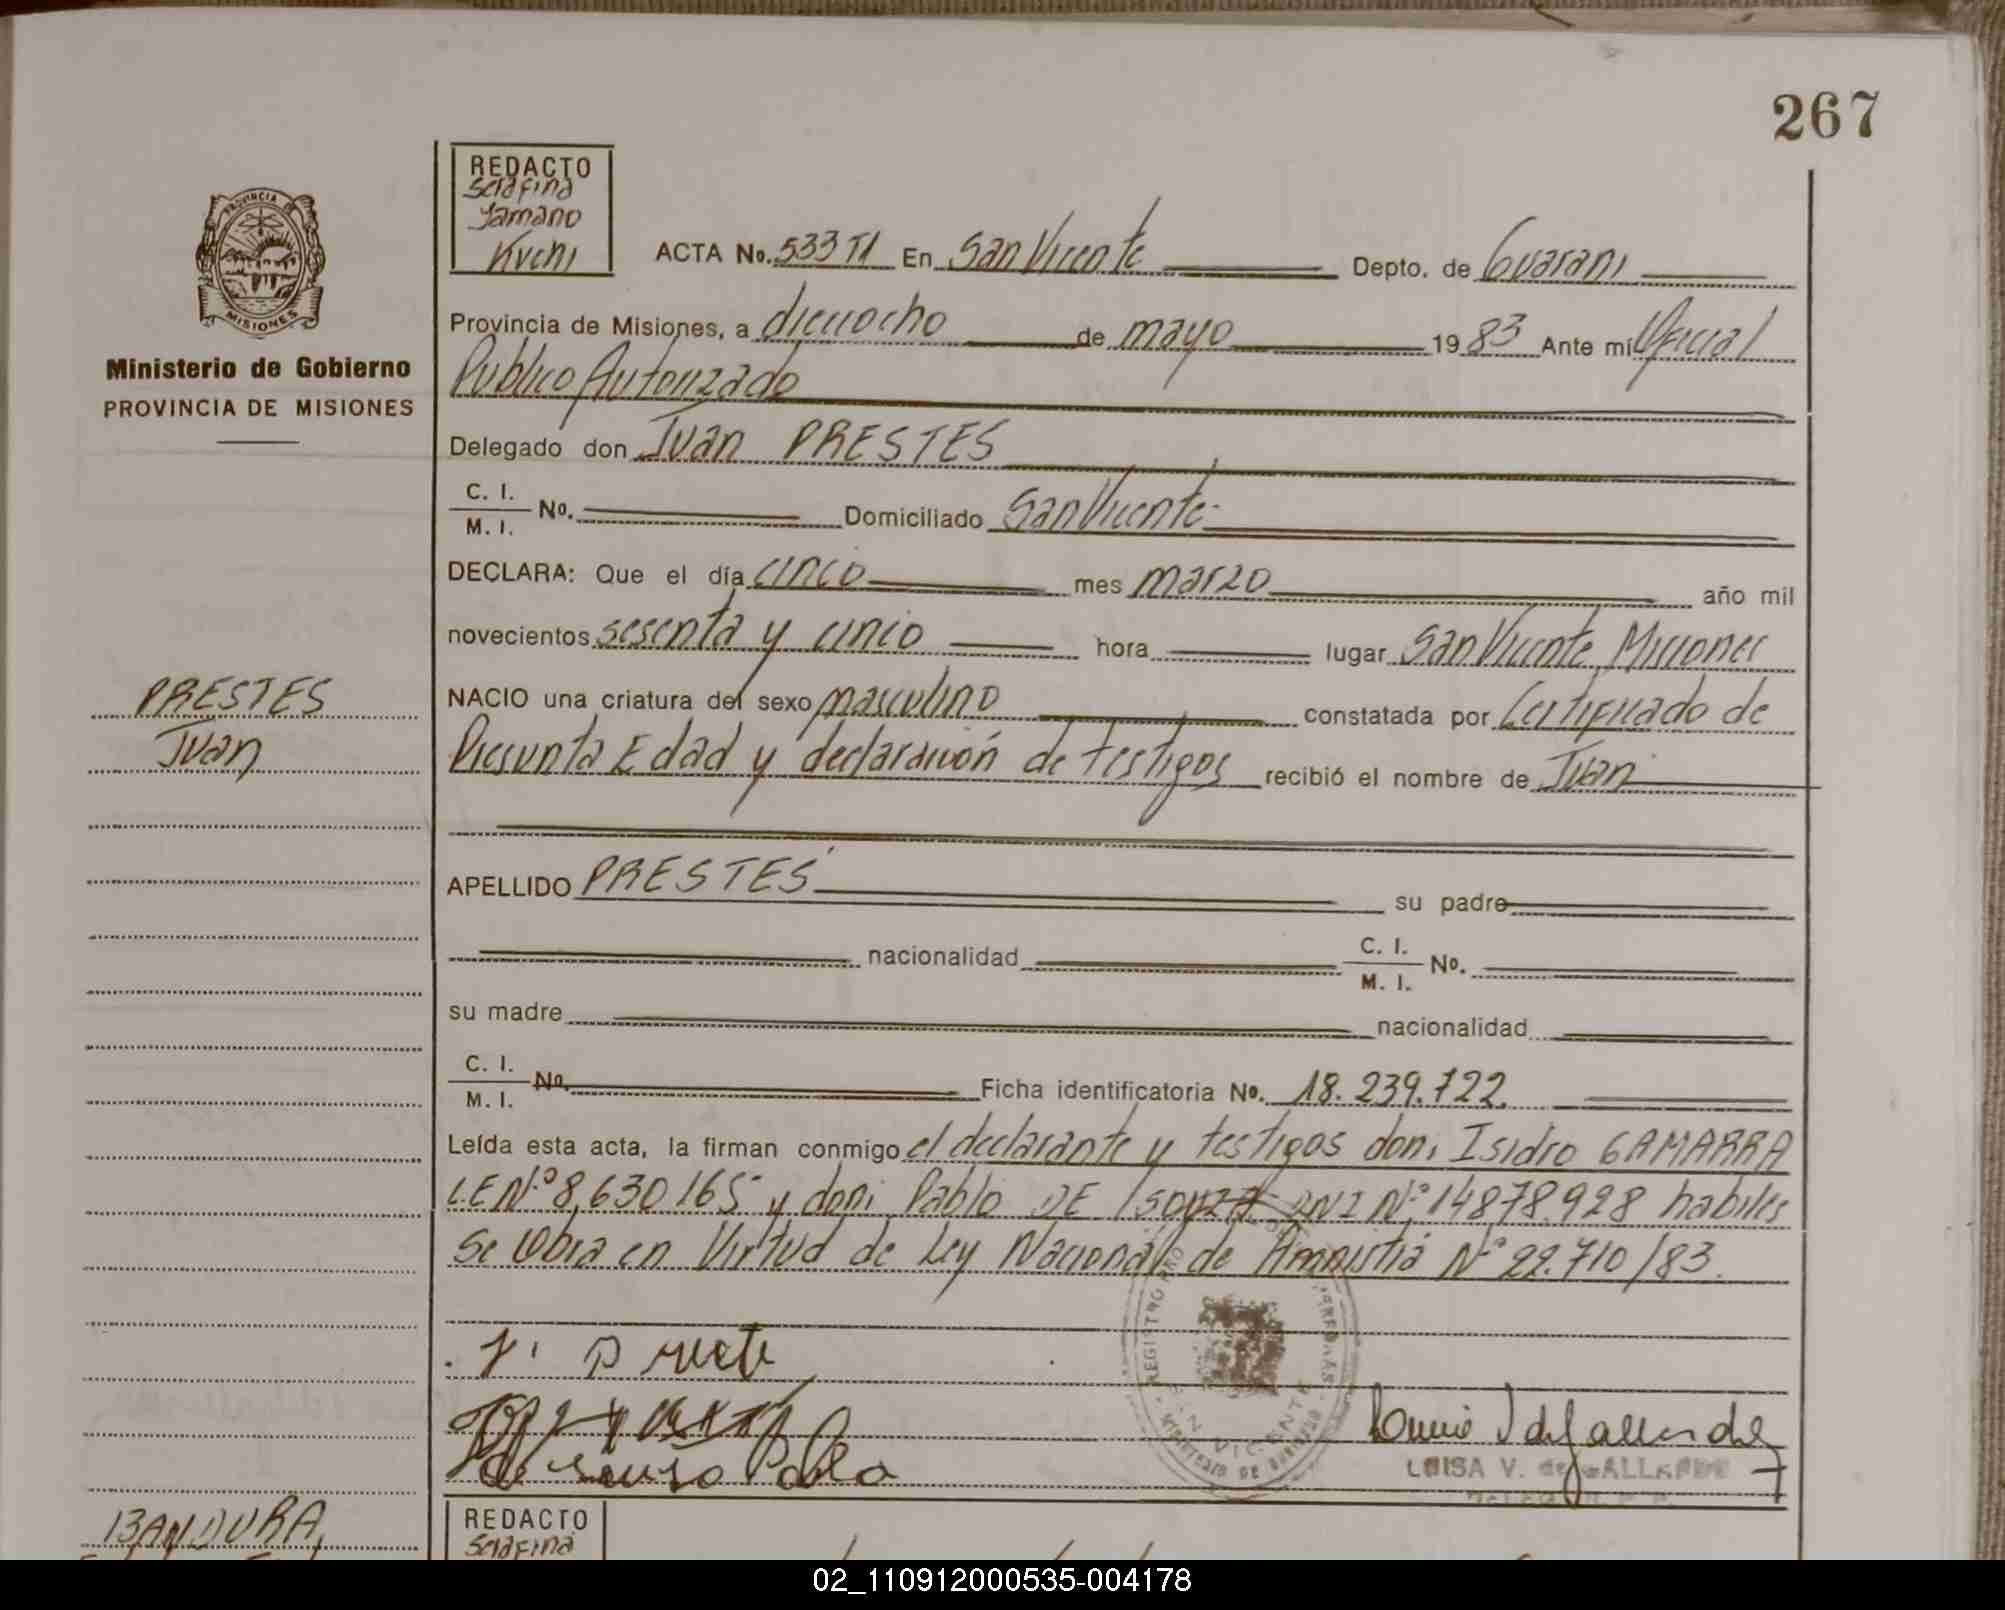 267
REDACTO
Serafina
Yamano
Kuchi
ACTA No. 533 TI En San Vicente Depto. de Guarani
PROVINCIA DE
MISIONES
Ministerio de Gobierno
PROVINCIA DE MISIONES
Provincia de Misiones, a dieciocho de mayo 1983 Ante mí Oficial
Publico Autorizado
Delegado don Juan PRESTES
C. I.
M. I. No. Domiciliado San Vicente
DECLARA: Que el día cinco mes marzo año mil
novecientos sesenta y cinco hora lugar San Vicente Misiones
PRESTES
Juan
NACIO una criatura del sexo masculino constatada por Certificado de
Presunta Edad y declaración de testigos recibió el nombre de Juan
APELLIDO PRESTES su padre
nacionalidad C. I.
M. I. No.
su madre nacionalidad
C. I.
M. I. No. Ficha identificatoria No. 18.239.722.
Leída esta acta, la firman conmigo el declarante y testigos don: Isidro GAMARRA
L.E Nº 8,630165 y don: Pablo DE SOUZA DNI Nº 14878.928 habiles
Se Obra en Virtud de Ley Nacional de Amnistia Nº 22.710/83.
REGISTRO
SAN VICENTE
MINISTERIO DE GOBIERNO
de Souza Pablo
LUISA V. de GALLARDO
BANDURA
REDACTO
Serafina
02_110912000535-004178